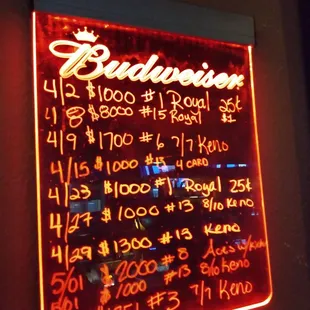 Budweiser
4/2 $1000 #1 Royal 25¢
4/8 $8000 #15 Royal $1
4/9 $1700 #6 7/7 Keno
4/15 $1000 4 CARD
4/23 $1000 #1 Royal 25¢
4/27 $1000 #13 8/10 Keno
4/29 $1300 #13 Keno
5/01 $2000 #8 Aces w/
5/01 $1000 #13 8/10 Keno
#3 7/7 Keno